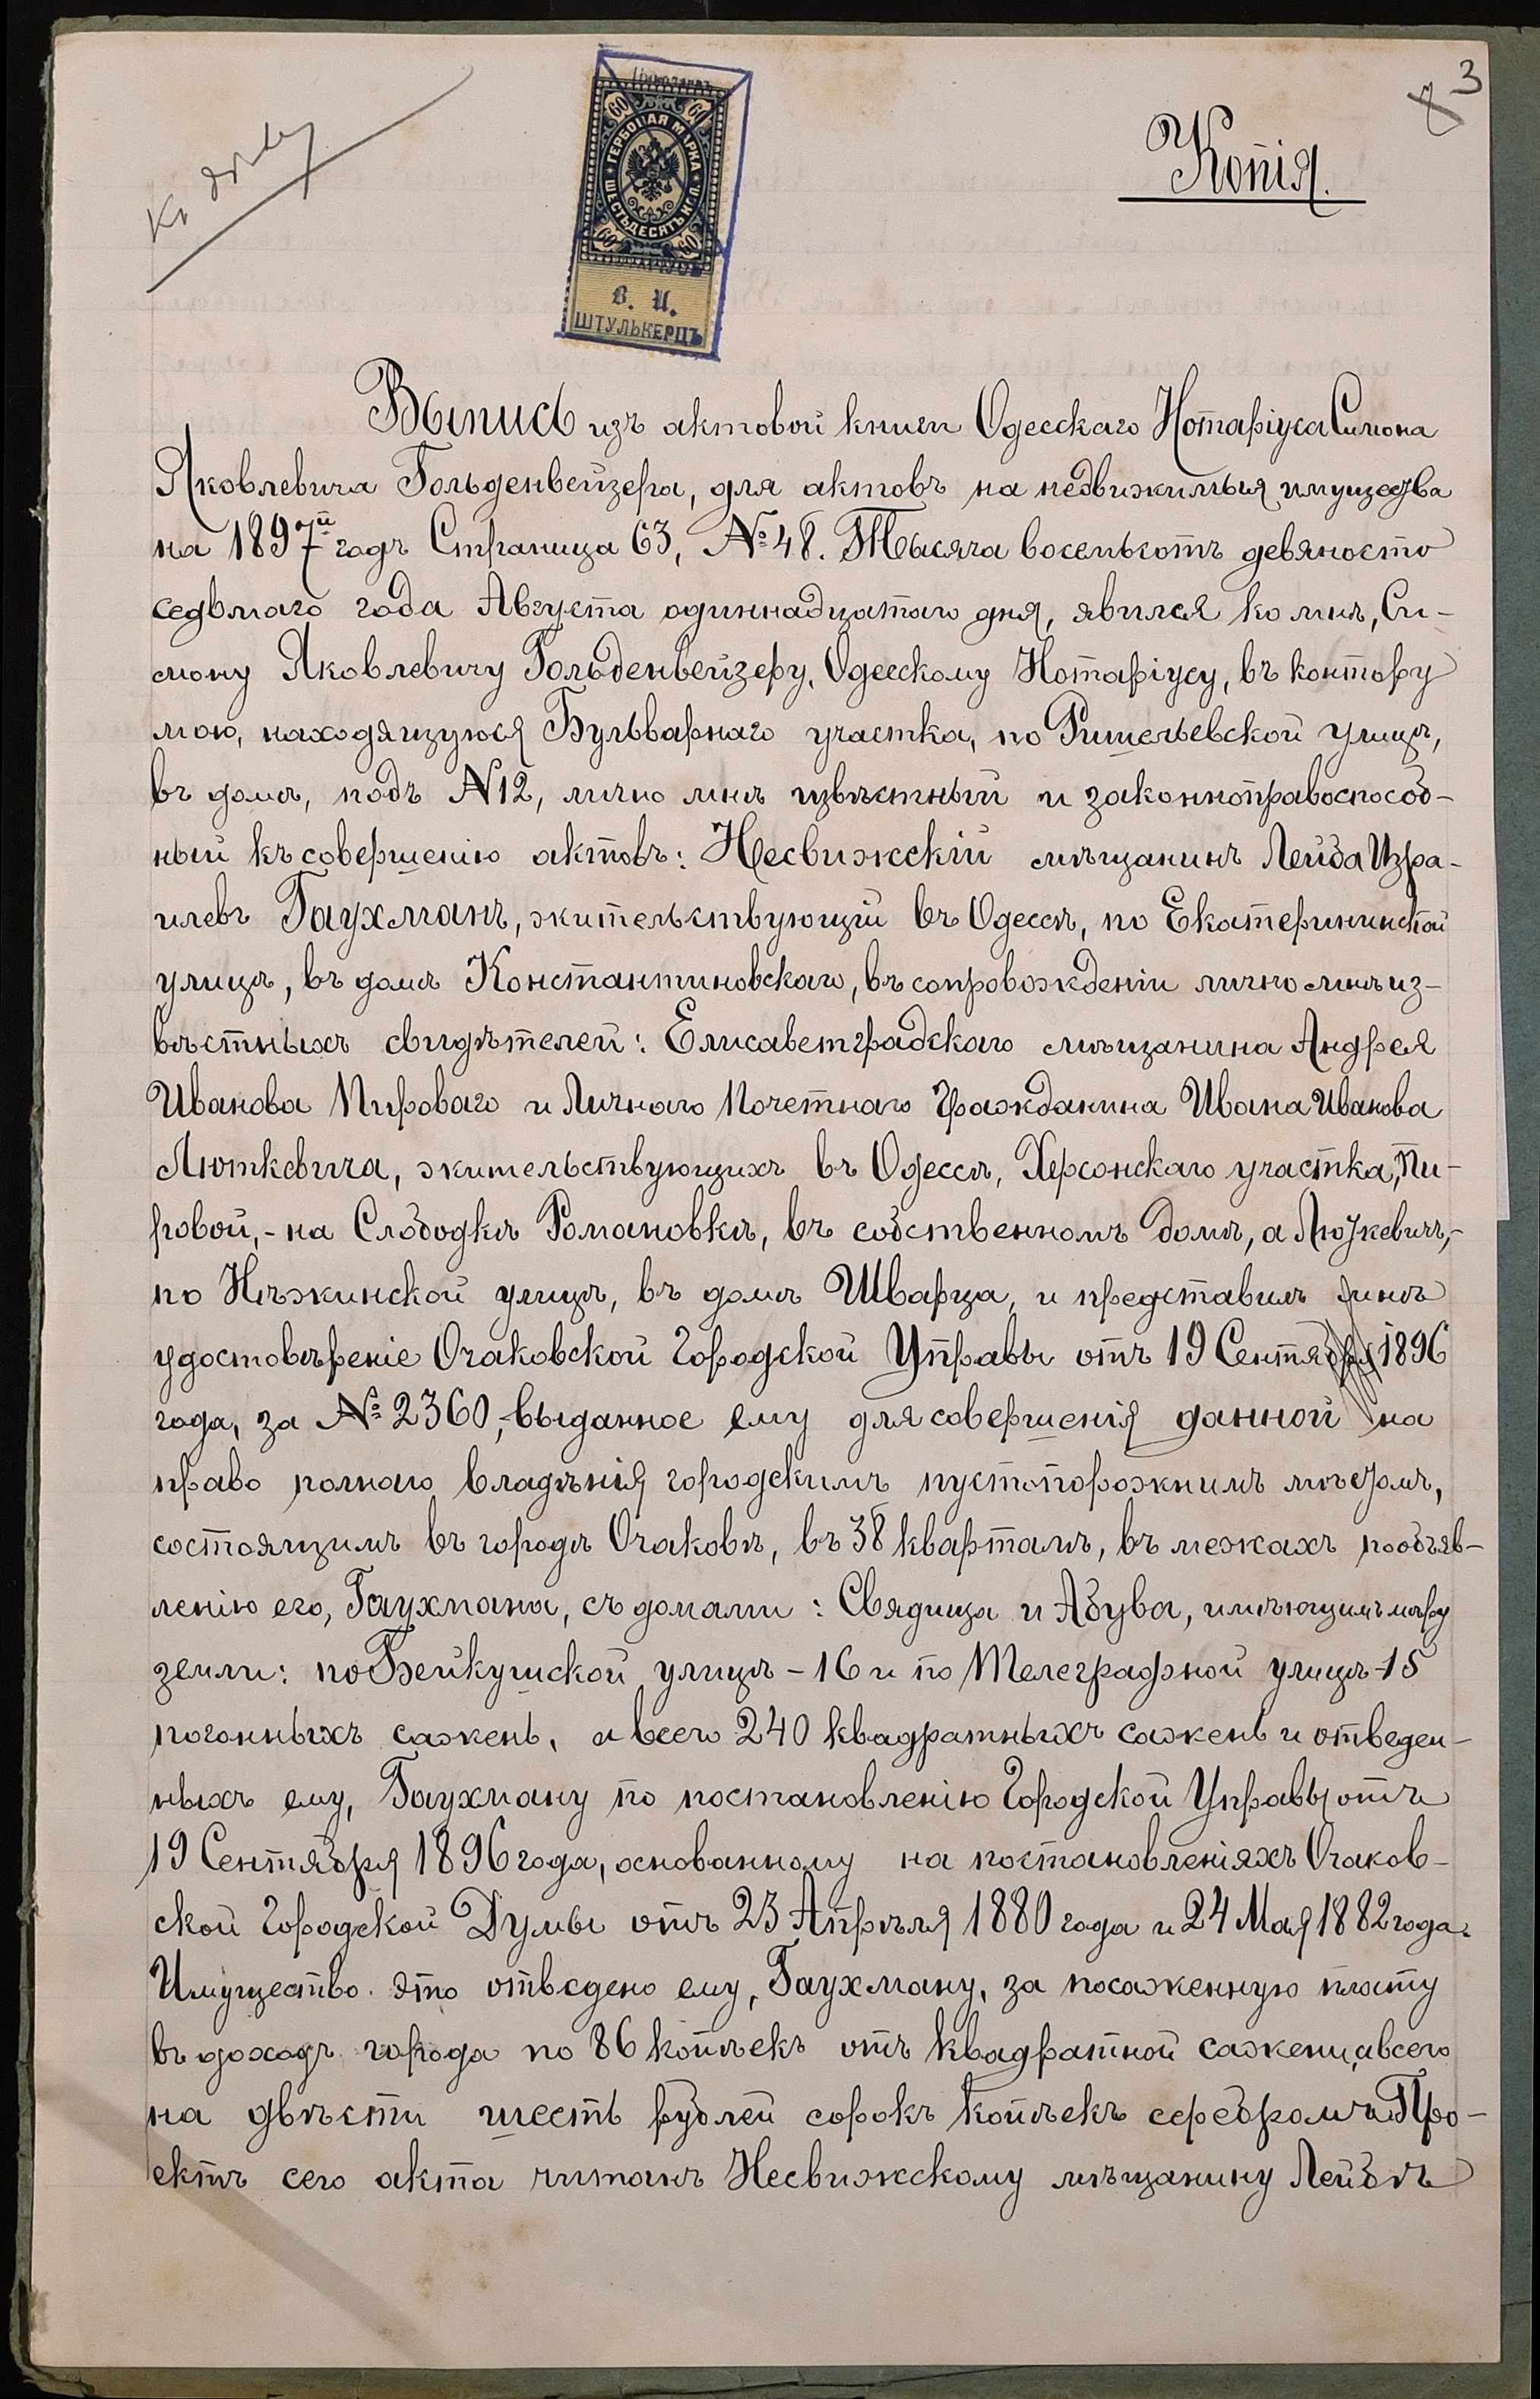 3
Къ дѣлу
Копія.
ГЕРБОВАЯ МАРКА
ШЕСТЬДЕСЯТЪ КОП.
60 60
60 60
В. И.
ШТУЛЬКЕРЦЪ
Выпись изъ актовой книги Одесскаго Нотаріуса Симона
Яковлевича Гольденвейзера, для актовъ на недвижимыя имущества
на 1897й годъ Страница 63, № 48. Тысяча восемьсотъ девяносто
седьмаго года Августа одиннадцатаго дня, явился ко мнѣ, Си-
мону Яковлевичу Гольденвейзеру, Одесскому Нотаріусу, въ контору
мою, находящуюся Бульварнаго участка, по Ришельевской улицѣ,
въ домѣ, подъ N12, лично мнѣ извѣстный и законноправоспособ-
ный къ совершенію актовъ: Несвижскій мѣщанинъ Лейба Изра-
илевъ Гаухманъ, жительствующій въ Одессѣ, по Екатерининской
улицѣ, въ домѣ Константиновскаго, въ сопровожденіи лично мнѣ из-
вѣстныхъ свидѣтелей: Елисаветградскаго мѣщанина Андрея
Иванова Пироваго и Личнаго Почетнаго Гражданина Ивана Иванова
Люткевича, жительствующихъ въ Одессѣ, Херсонскаго участка, Пи-
ровой,- на Слободкѣ Романовкѣ, въ собственномъ домѣ, а Люткевичъ,-
по Нѣжинской улицѣ, въ домѣ Шварца, и представилъ мнѣ
удостовѣреніе Очаковской Городской Управы отъ 19 Сентября 1896
года, за № 2360,-выданное ему для совершенія данной на
право полнаго владѣнія городскимъ пустопорожнимъ мѣстомъ,
состоящимъ въ городѣ Очаковѣ, въ 38 кварталѣ, въ межахъ по объяв-
ленію его, Гаухмана, съ домами: Свядища и Абува, имѣющимъ мѣру
земли: по Бейкушской улицѣ - 16 и по Телеграфной улицѣ - 15
погонныхъ сажень, а всего 240 квадратныхъ сажень и отведен-
ныхъ ему, Гаухману по постановленію Городской Управы отъ
19 Сентября 1896 года, основанному на постановленіяхъ Очаков-
ской Городской Думы отъ 23 Апрѣля 1880 года и 24 Мая 1882 года.
Имущество это отведено ему, Гаухману, за посаженную плату
въ доходъ города по 86 копѣекъ отъ квадратной сажени, а всего
на двѣсти шесть рублей сорокъ копѣекъ серебромъ. Про-
ектъ сего акта читанъ Несвижскому мѣщанину Лейбѣ